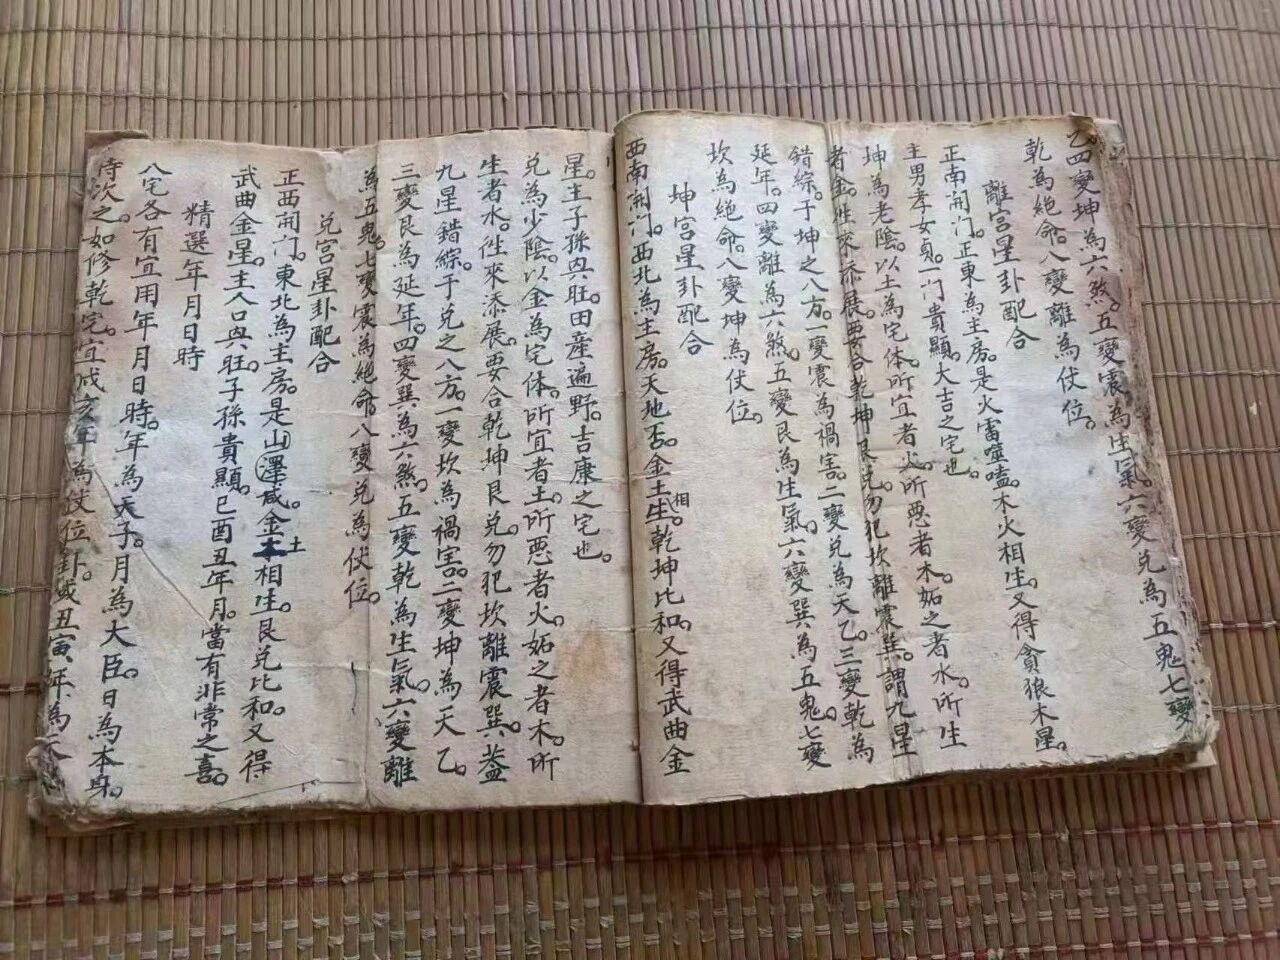 乙四變坤為六煞。五變震為生氣。六變兌為五鬼七變
乾為絕命。八變離為伏位。
離宮星卦配合
正南開门。正東為主房。是火雷噬嗑。木火相生。又得貪狼木星。
主男孝女貞。一门貴顯。大吉之宅也。
坤為老陰。以土為宅体。所宜者火。所惡者木。妬之者水。所生
者金。徃來添展。要合乾坤艮兌。勿犯坎離震巽。謂九星
錯綜。于坤之八方。一變震為禍害。二變兌為天乙。三變乾為
延年。四變離為六煞。五變艮為生氣。六變巽為五鬼。七變
坎為絕命。八變坤為伏位。
坤宮星卦配合
西南開门。西北為主房。天地否。金土相生。乾坤比和。又得武曲金
星。主子孫兴旺。田産遍野。吉康之宅也。
兌為少陰。以金為宅体。所宜者土。所惡者火。妬之者木。所
生者水。徃來添展。要合乾坤艮兌。勿犯坎離震巽。蓋
九星錯綜。于兌之八方。一變坎為禍害。二變坤為天乙。
三變艮為延年。四變巽為六煞。五變乾為生氣。六變離
為五鬼。七變震為絕命八變兌為伏位。
兌宮星卦配合
正西開门。東北為主房。是山澤咸。金土相生。艮兌比和。又得
武曲金星。主人口興旺。子孫貴顯。巳酉丑年月。當有非常之喜。
精選年月日時
八宅各有宜用年月日時。年為天子。月為大臣。日為本身。
時次之。如修乾宅。宜戌亥年為伏位卦。或丑寅年為天